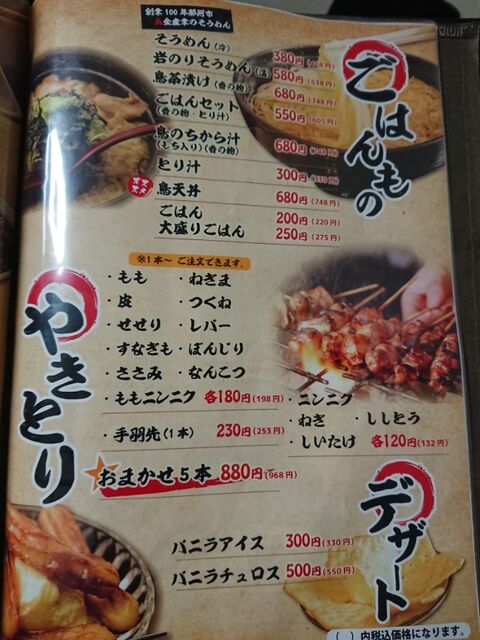 創業100年那珂市
金農業のそうめん
ごはんもの
そうめん(冷) 380円
岩のりそうめん(温) 580円(638円)
鳥茶漬け(香の物) 680円(748円)
ごはんセット 550円(605円)
(香の物・とり汁)
鳥のちから汁 680円(748円)
(もち入り)(香の物)
とり汁 300円(330円)
オススメ 鳥天丼 680円(748円)
ごはん 200円(220円)
大盛りごはん 250円(275円)
やきとり
※1本~ ご注文できます。
・もも ・ねぎま
・皮 ・つくね
・せせり ・レバー
・すなぎも ・ぼんじり
・ささみ ・なんこつ
・ももニンニク 各180円(198円)
・ニンニク
・ねぎ ・ししとう
・しいたけ 各120円(132円)
・手羽先(1本) 230円(253円)
おまかせ5本 880円(968円)
デザート
バニラアイス 300円(330円)
バニラチュロス 500円(550円)
( )内税込価格になります。